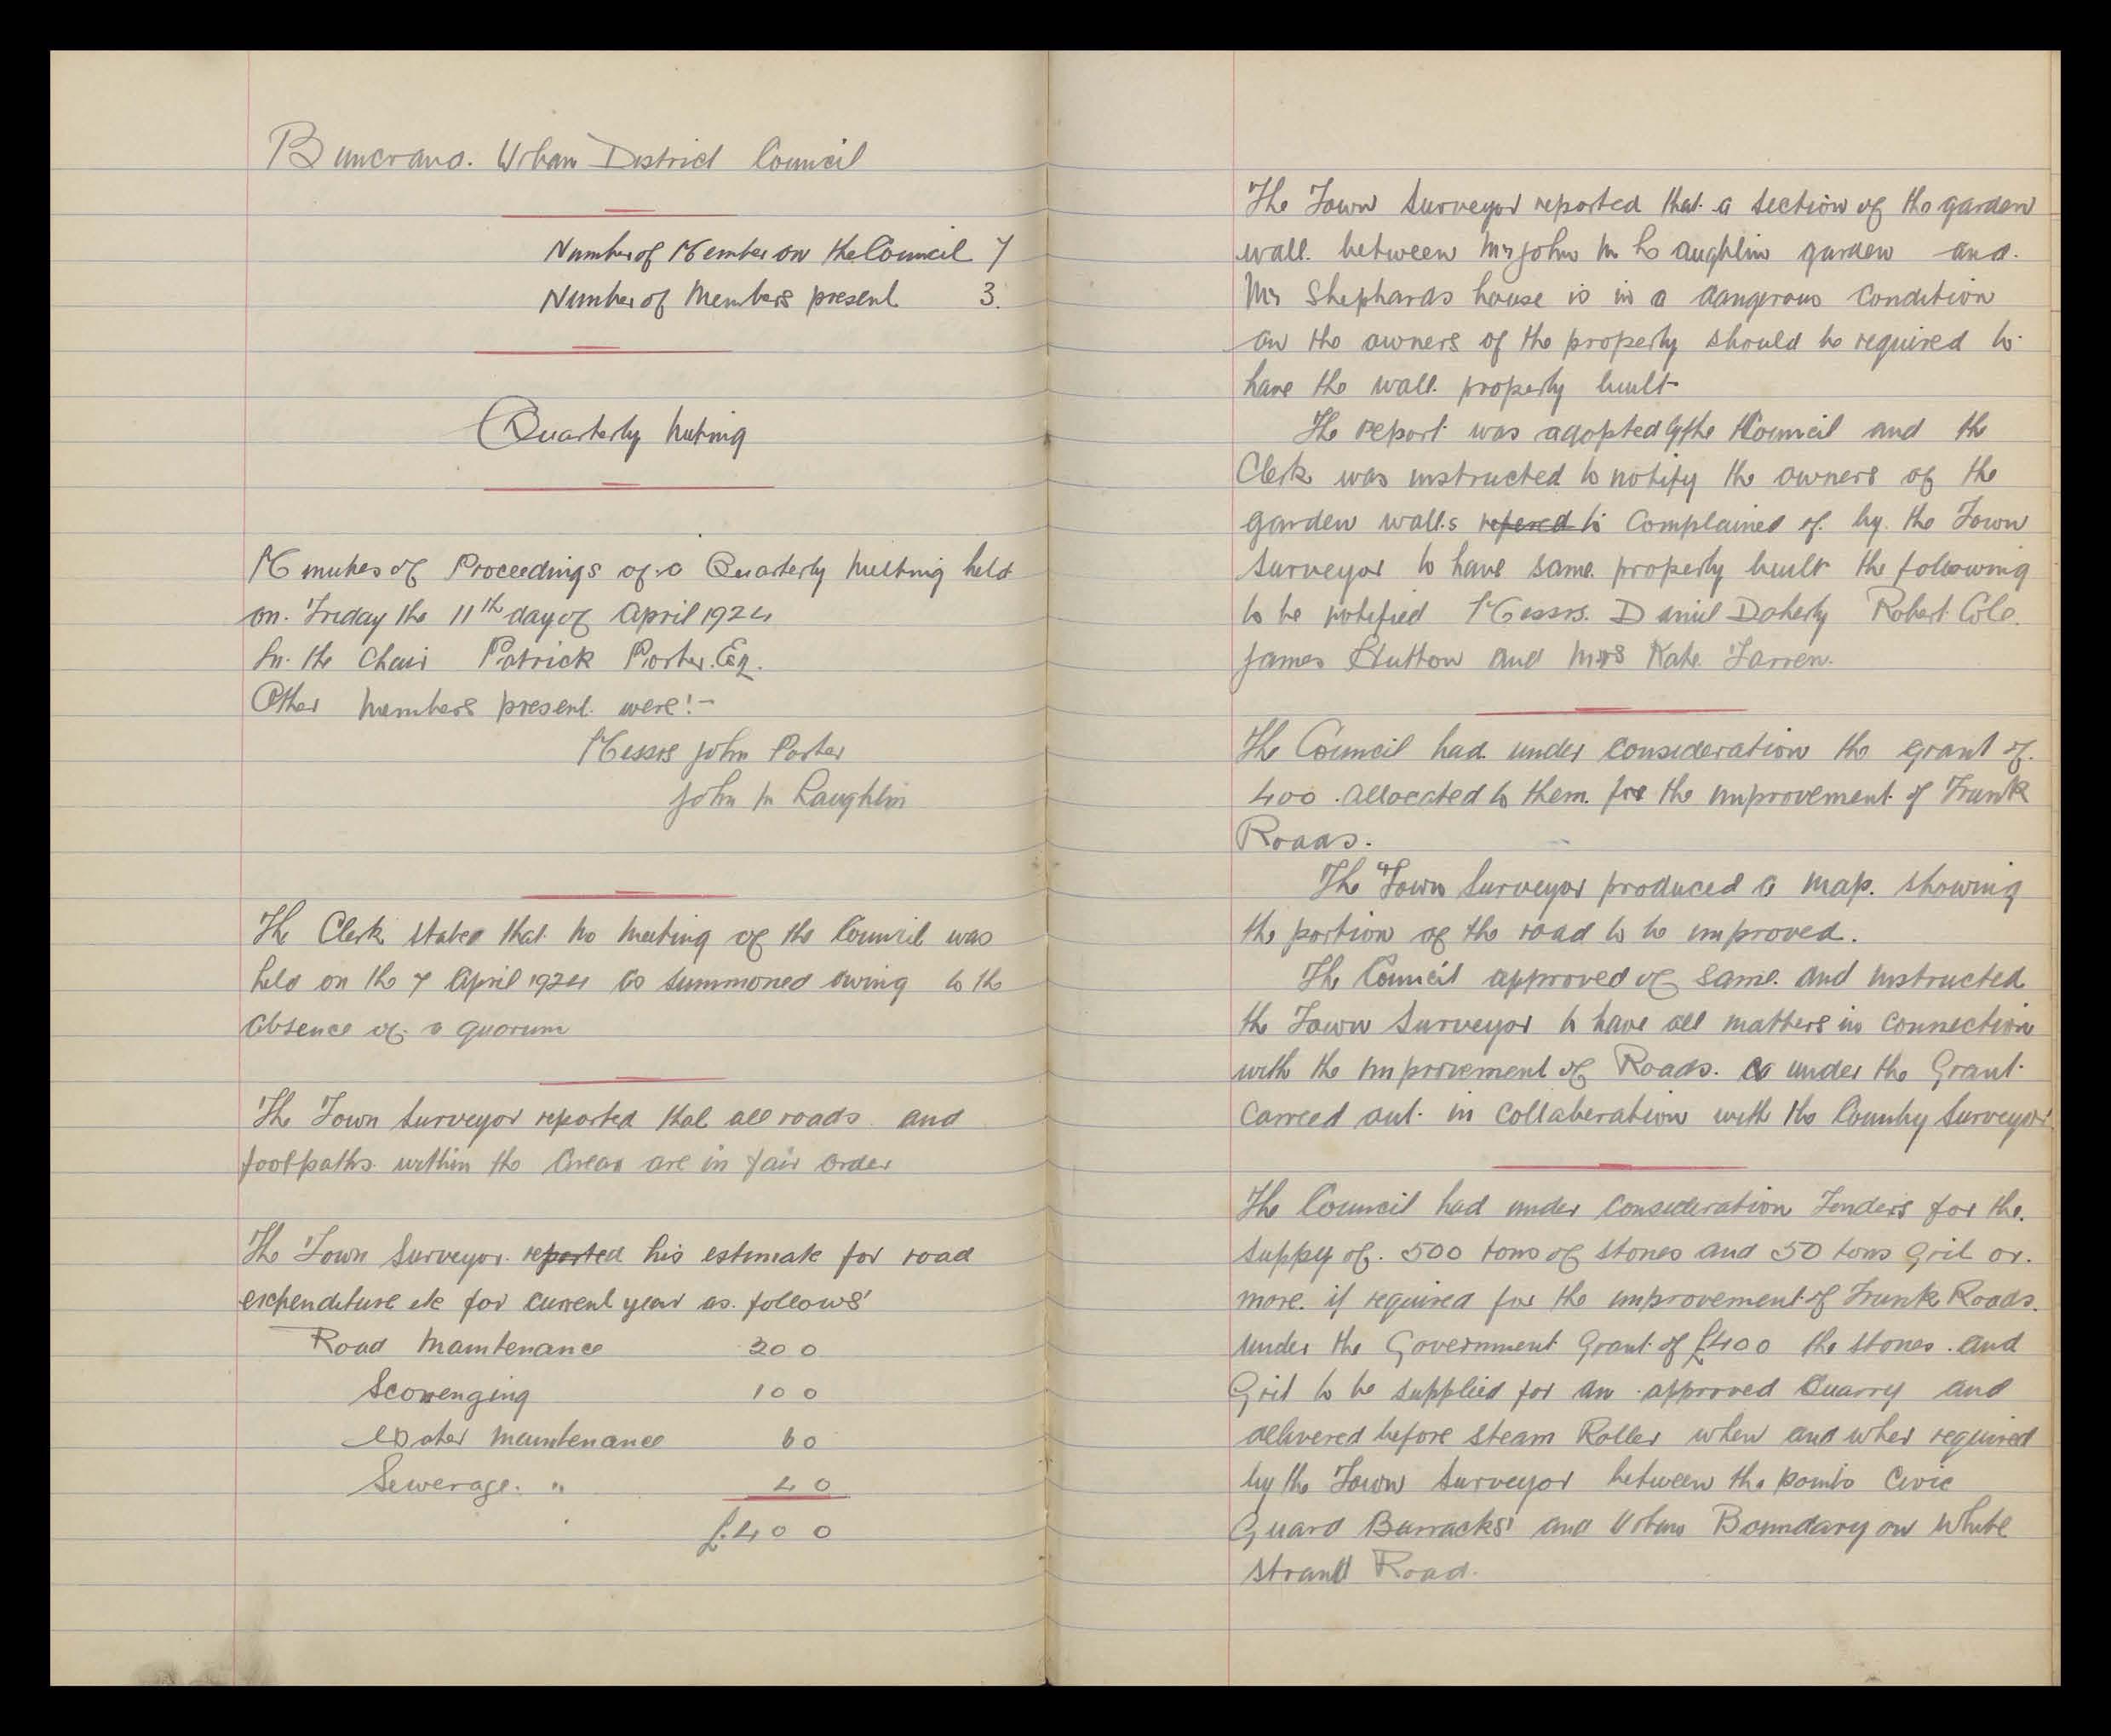 Buncrana. Urban District Council
Number of Member on the Council 7
Number of Members present 3.
Quarterly Meeting
Minutes of Proceedings of a Quarterly Meeting held
on. Friday the 11th day of April 1924
In. the Chair Patrick Porter. Esq.
Other Members present were:-
Messrs John Porter
John Mc Laughlin
The Clerk stated that no meeting of the Council was
held on the 7 April 1924 as summoned owing to the
absence of a quorum
The Town Surveyor reported that all roads and
footpaths within the Area are in fair order
The Town Surveyor. reported his estimate for road
expenditure etc for current year as. follows
Road Maintenance 200
Scavenging 100
Water maintenance 60
Sewerage. " 40
£400
The Town Surveyor reported that a section of the garden
wall. between Mr John Mc Laughlin garden and.
Mr Shephards house is in a dangerous condition
an the owners of the property should be required to
have the wall. properly built
The report was adopted by the Council and the
Clerk was instructed to notify the owners of the
garden walls refered to Complained of. by. the Town
Surveyor to have same. properly built the following
to be notified Messrs. Daniel Doherty Robert Cole.
James Hutton and Mrs Kate Farren.
The Council had. under consideration the grant of.
400. allocated to them. for the improvement of Trunk
Roads.
The Town Surveyor produced a map. showing
the portion of the road to be improved.
The Council approved of same. and instructed
the Town Surveyor to have all matters in connection
with the improvement of Roads. under the Grant
carried out. in collaberation with the County Surveyor
The Council had under consideration Tenders for the.
supply of. 500 tons of stones and 50 tons Grit or.
more. if required for the improvement of Trunk Roads.
under the Government Grant of £400 the stones. and
Grit to be supplied for an approved Quarry and
delivered before Steam Roller when and wher required
by the Town Surveyor between the points Civic
Guard Barracks' and Urban Boundary on White
Strand Road.